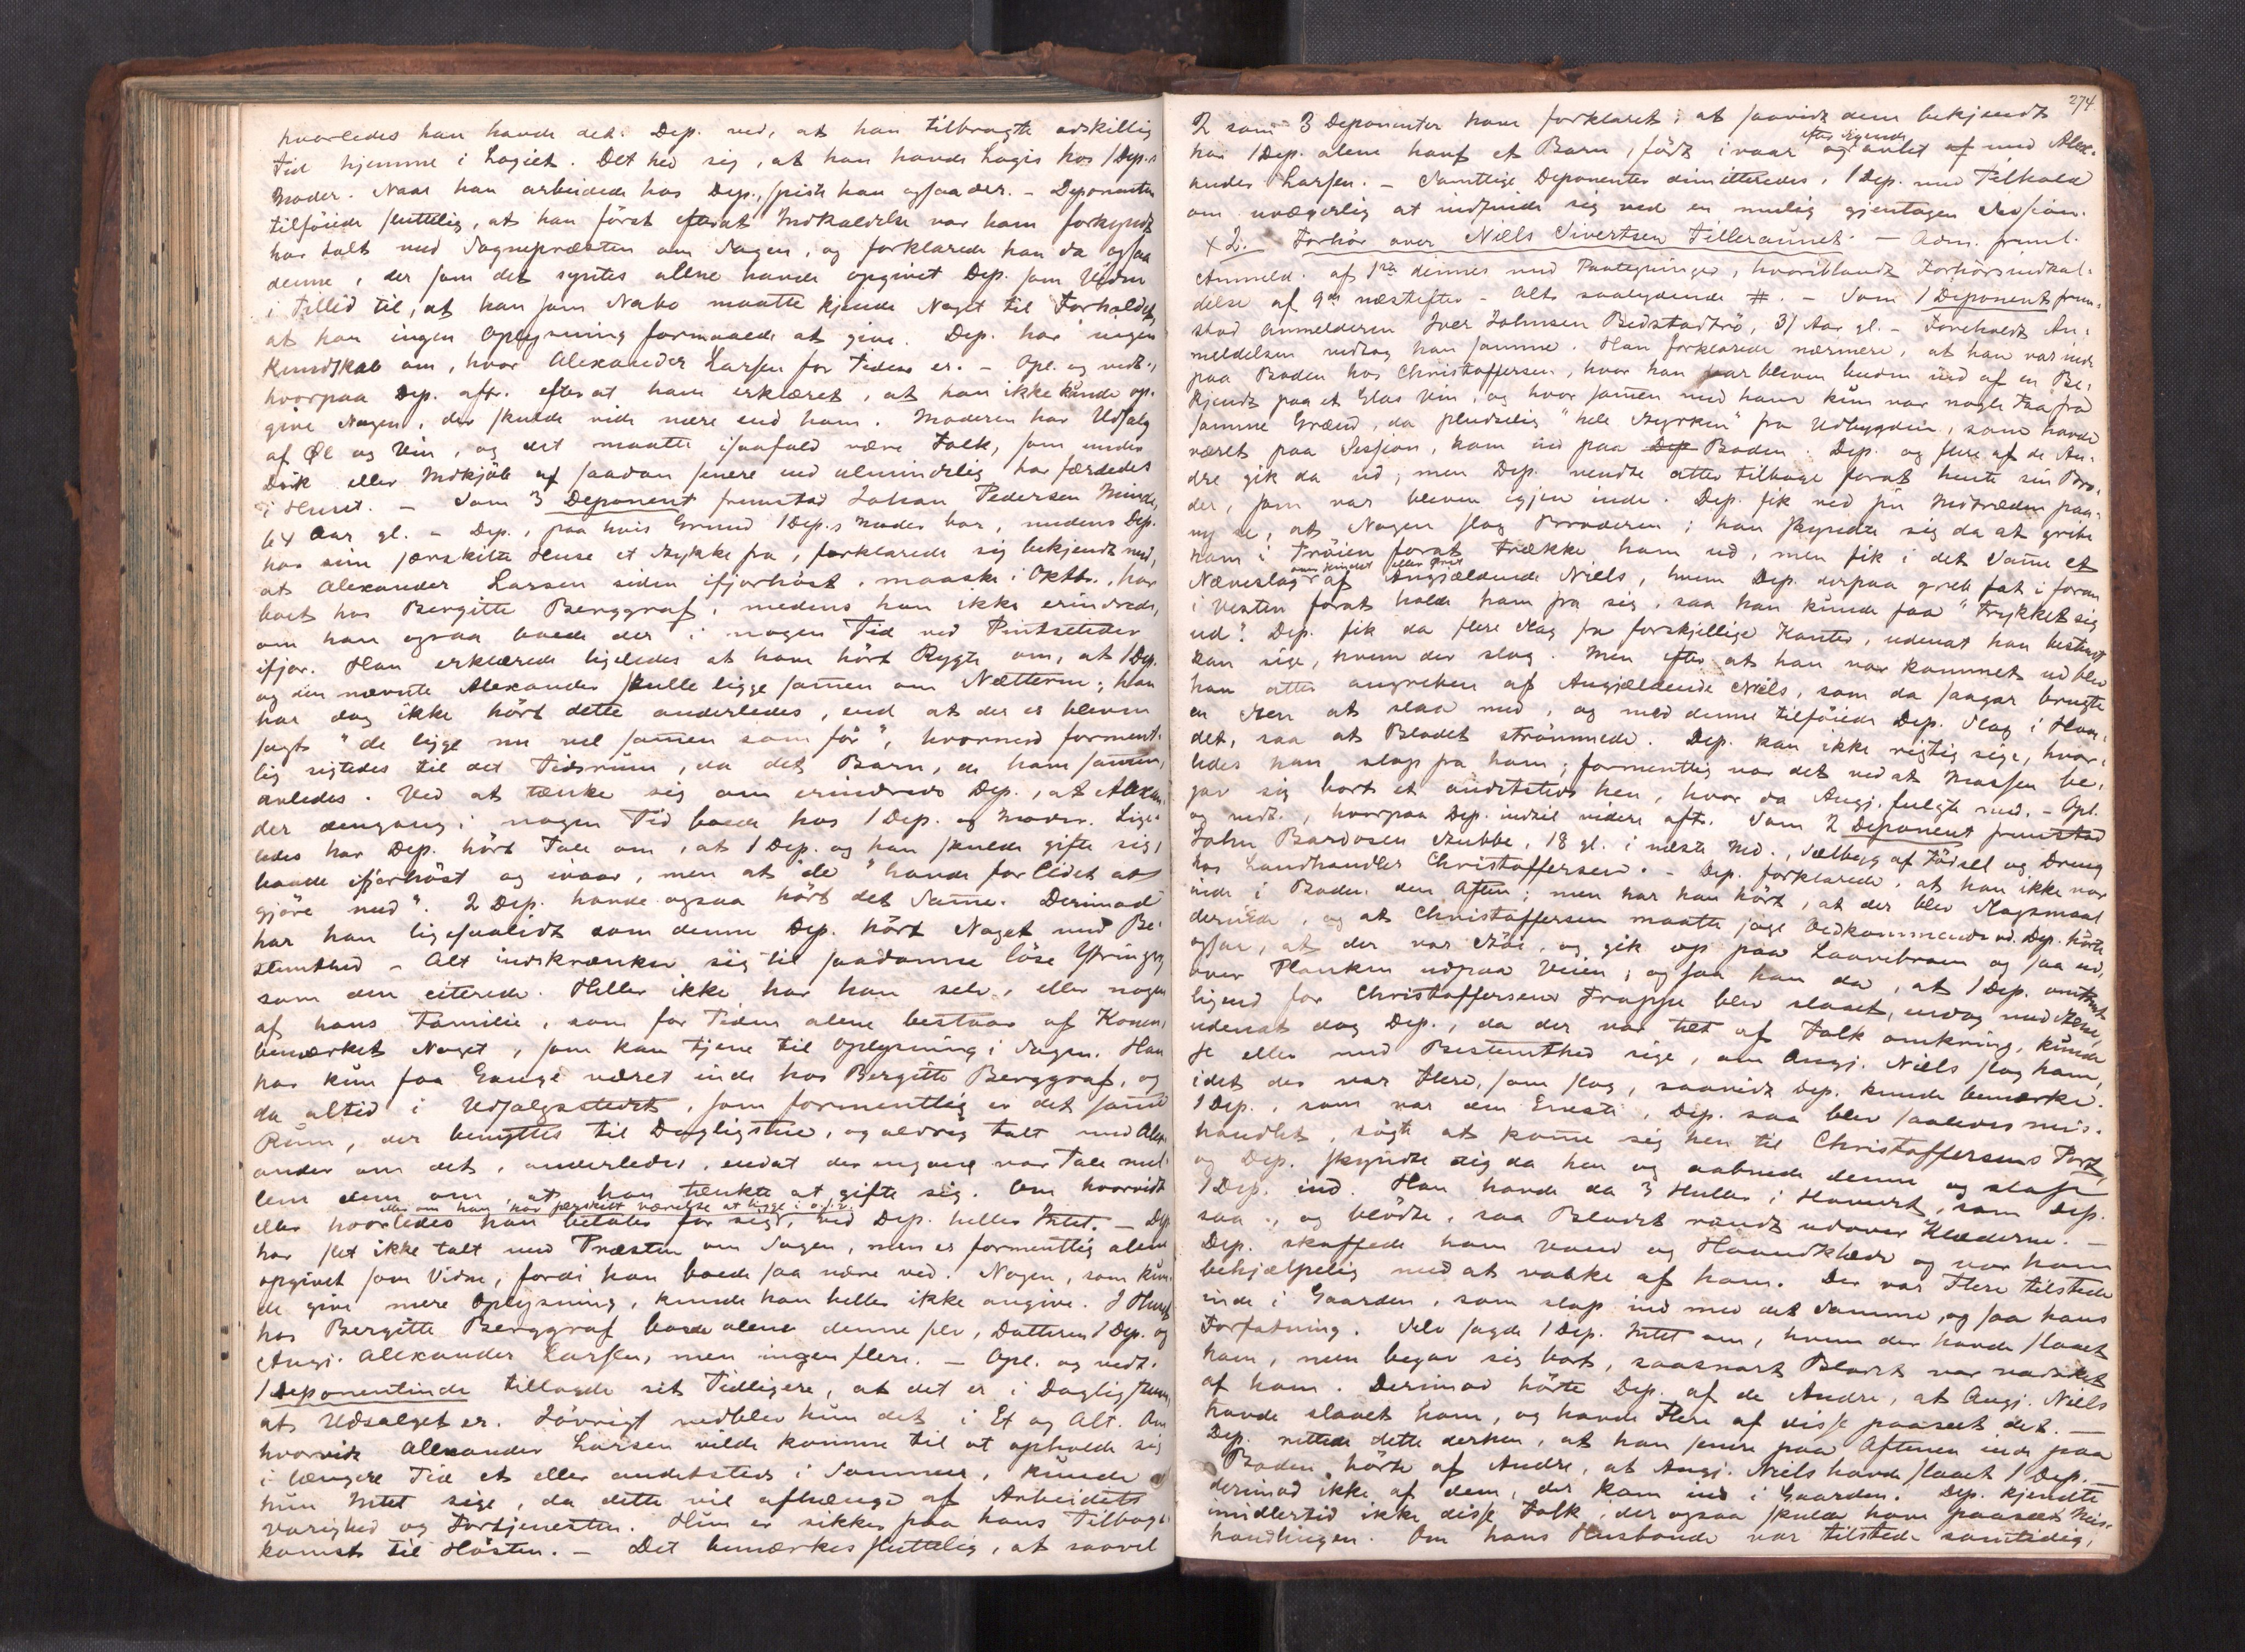 hvorledes han havde det. Dep. ved, at han tilbragte adskillig
Tid hjemme i Logiet. Det hed sig, at han havde Logis hos 1 Dep.s
Moder. Naar han arbeidede hos Dep., spiste han ogsaa der. – Deponenten
tilföiede sluttelig, at han först efterat Indkaldelse var ham forkyndt
har talt med Sognepræsten om Sagen, og forklarede han da ogsaa
denne, der som det syntes alene havde opgivet Dep. som Vidne
i Tillid til, at han som Nabo maatte kjende Noget til Forholdet,
at han ingen Oplysning formaaede at give. Dep. har ingen
Kundskab om, hvor Alexander Larsen for Tiden er. – Opl. og vedt.,
hvorpaa Dep. aftr. efterat have erklæret, at han ikke kunde op-
give Nogen, der skulde vide mere end ham. Moderen har Udsalg
af Øl og Vin, og det maatte isaafald være Folk, som under
Drik eller Indkjöb af saadan senere end almindelig har færdedes
i Huset. – Som 3 Deponent fremstod Johan Pedersen
64 Aar gl. – Dep., paa hvis Grund 1 Dep.s Moder bor, medens Dep.
har sine særskilte Huse et Stykke fra, forklarede sig bekjendt med,
at Alexander Larsen siden ifjorhöst, maaske i Oktbr., har
boet hos Bergitte Berggraf, medens han ikke erindrede,
om han ogsaa boede der i nogen Tid ved Pintsetider
ifjor. Han erklærede ligeledes at have hört Rygte om, at 1 Dep.
og den nævnte Alexander skulle ligge sammen om Nætterne; han
har dog ikke hört dette anderledes, end at der er bleven
sagt "de ligge nu vel sammen som för", hvormed forment-
lig sigtedes til det Tidsrum, da det Barn, de have sammen,
avledes. Ved at tænke sig om erindrede Dep., at Alexan-
der dengang i nogen Tid boede hos 1 Dep. og Moder. Lige-
ledes har Dep. hört Tale om, at 1 Dep. og han skulde gifte sig,
baade ifjorhöst og ivaar, men at de "havde for lidet at
gjöre med". 2 Dep. havde ogsaa hört det Samme. Derimod
har han ligesaalidt som denne Dep. hört Noget med Be-
stemthed – Alt indskrænker sig til saadanne löse Ytringer
som den citerede. Heller ikke har han selv, eller nogen
af hans Familie, som for Tiden alene bestaar af Konen,
bemærket Noget, som kan tjene til Oplysning i Sagen. Han
har kun faa Gange været inde hos Bergitte Berggraf, og
da altid i Udsalgsstedet, som formentlig er det samme
Rum, der benyttes til Dagligstue, og aldrig talt med Alex-
ander om det, anderledes, endat der engang var Tale mel-
lem dem om, at han tænkte at gifte sig. Om hvorvidt
eller om han har særskilt værelse at ligge i o.s.v.
eller hvorledes han betaler for sig, ved Dep. heller Intet. – Dep.
har slet ikke talt med Præsten om Sagen, men er formentlig alene
opgivet som Vidne, fordi han boede saa nære ved. Nogen, som kun-
de give mere Oplysning, kunde han heller ikke angive. I Huset
hos Bergitte Berggraf boede alene denne selv, Datteren 1 Dep. og
Angj. Alexander Larsen, men ingen flere. – Opl. og vedt.
1 Deponentinde tillagde sit Tidligere, at det er i Dagligstuen,
at Udsalget er. Iövrigt vedblev hun det i Et og Alt. Om
hvorvidt Alexander Larsen vilde komme til at opholde sig
i længere Tid et eller andetsteds i Sommer, kunde
hun Intet sige, da dette vil afhænge af Arbeidets
Varighed og Fortjenesten. Hun er sikker paa hans Tilbage-
komst til Hösten. – Det bemærkes sluttelig, at saavel
274
2 som 3 Deponenter have forklaret, at saavidt dem bekjendt
efter Sigende
har 1 Dep. alene havt et Barn, födt ivaar og avlet af med Alex-
ander Larsen. – Samtlige Deponenter dimitteredes, 1 Dep. med Tilhold
om uvægerlig at indfinde sig ved en mulig gjentagen Session.
x 2. Forhör over Niels Sivertsen Telleraunet. – Adm. freml.
Anmeld. af 1ste dennes med Paategninger, hvoriblandt Forhörsindkal-
delse af 9de næstefter – Alt saalydende #. – Som 1 Deponent frem-
stod Anmelderen Iver Johnsen Bedstadtrö, 31 Aar gl. – Foreholdt An-
meldelsen vedtog han samme. Han forklarede nærmere, at han var inde
paa Boden hos Christoffersen, hvor han var bleven buden ind af en Be-
kjendt paa et Glas Vin, og hvor sammen med ham kun var nogle Faa fra
samme Grænd, da pludselig "hele Styrken" fra Udbygden, som havde
været paa Session, kom ind paa Dep Boden. Dep. og flere af de An-
dre gik da ud, men Dep. vendte atter tilbage forat hente sin Bro-
der, som var bleven igjen inde. Dep. fik ved sin Indtræden paa-
ny se, at Nogen slog Broderen; han skyndte sig da at gribe
ham i Tröien forat trække ham ud, men fik i det Samme et
over Kindet eller Öret
Næveslag af Angjældende Niels, hvem Dep. derpaa greb fat i foran
i Vesten forat holde ham fra sig, saa han kunde faa "trykket sig
ud". Dep. fik da flere Slag fra forskjellige Kanter, udenat han bestemt
kan sige, hvem der slog. Men efter at han var kommet ud blev
han atter angreben af Angjældende Niels, som da saagar brugte
en Sten at slaa med, og med denne tilföiede Dep. Slag i Hove-
det, saa at Blodet strömmede. Dep. kan ikke rigtig sige, hvor-
ledes han slap fra ham; formentlig var det ved at Massen be-
gav sig bort et andetsteds hen, hvor da Angj. fulgte med. – Opl.
og vedt., hvorpaa Dep. indtil videre aftr. Som 2 Deponent fremstod
John Bardosen Stubbe, 18 gl. i næste Md., Sælbygg af Födsel og Dreng
hos Landhandler Christoffersen. – Dep. forklarede, at han ikke var
inde i Boden den Aften; men har han hört, at der blev Slagsmaal
derinde, og at Christoffersen maatte jage Vedkommende ud. Dep. hörte
ogsaa, at der var Stöi, og gik op paa Laavebroen og saa ud
over Planken udpaa Veien; og saa han da, at 1 Dep. omtrent
ligend for Christoffersens Trappe blev slaaet, endog med Stene,
udenat dog Dep., da der var tæt af Folk omkring, kunde
se eller med Bestemthed sige, om Angj. Niels slog ham,
idet der var Flere, som slog, saavidt Dep. kunde bemærke.
1 Dep., som var den Eneste, Dep. saa blev saaledes mis-
handlet, sögte at komme sig hen til Christoffersens Port,
og Dep. skyndte sig da hen og aabnede denne og slap
1 Dep. ind. Han havde da 3 Huller i Hovedet, som Dep.
saa, og blödte, saa Blodet randt udover Klæderne. –
Dep. skaffede ham Vand og Haandklæde og var ham
behjælpelig med at vadske af ham. Der var Flere tilstede
inde i Gaarden, som slap ind med det Samme, og saa hans
Forfatning. Selv sagde 1 Dep. Intet om, hvem der havde slaaet
ham, men begav sig bort, saasnart Blodet var vadsket
af ham. Derimod hörte Dep. af de Andre, at Angj. Niels
havde slaaet ham, og havde Flere af disse paaseet det. –
Dep. rettede dette derhen, at han senere paa Aftenen inde paa
Boden hörte af Andre, at Angj. Niels havde slaaet 1 Dep. –
derimod ikke af dem, der kom ind i Gaarden. Dep. kjendte
imidlertid ikke disse Folk, der ogsaa skulde have paaseet Mis-
handlingen. Om hans Husbonde var tilstede samtidig,